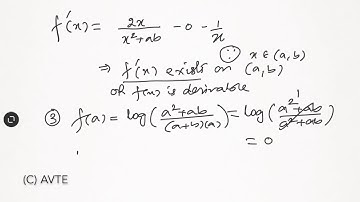 f'(x) = 2x/(x²+ab) - 0 - 1/x
∵ x ∈ (a,b)
⇒ f'(x) exists on (a,b)
or f(x) is derivable
③ f(a) = log((a²+ab)/((a+b)(a))) = log((a²+ab)/(a²+ab)) 1
= 0
(C) AVTE